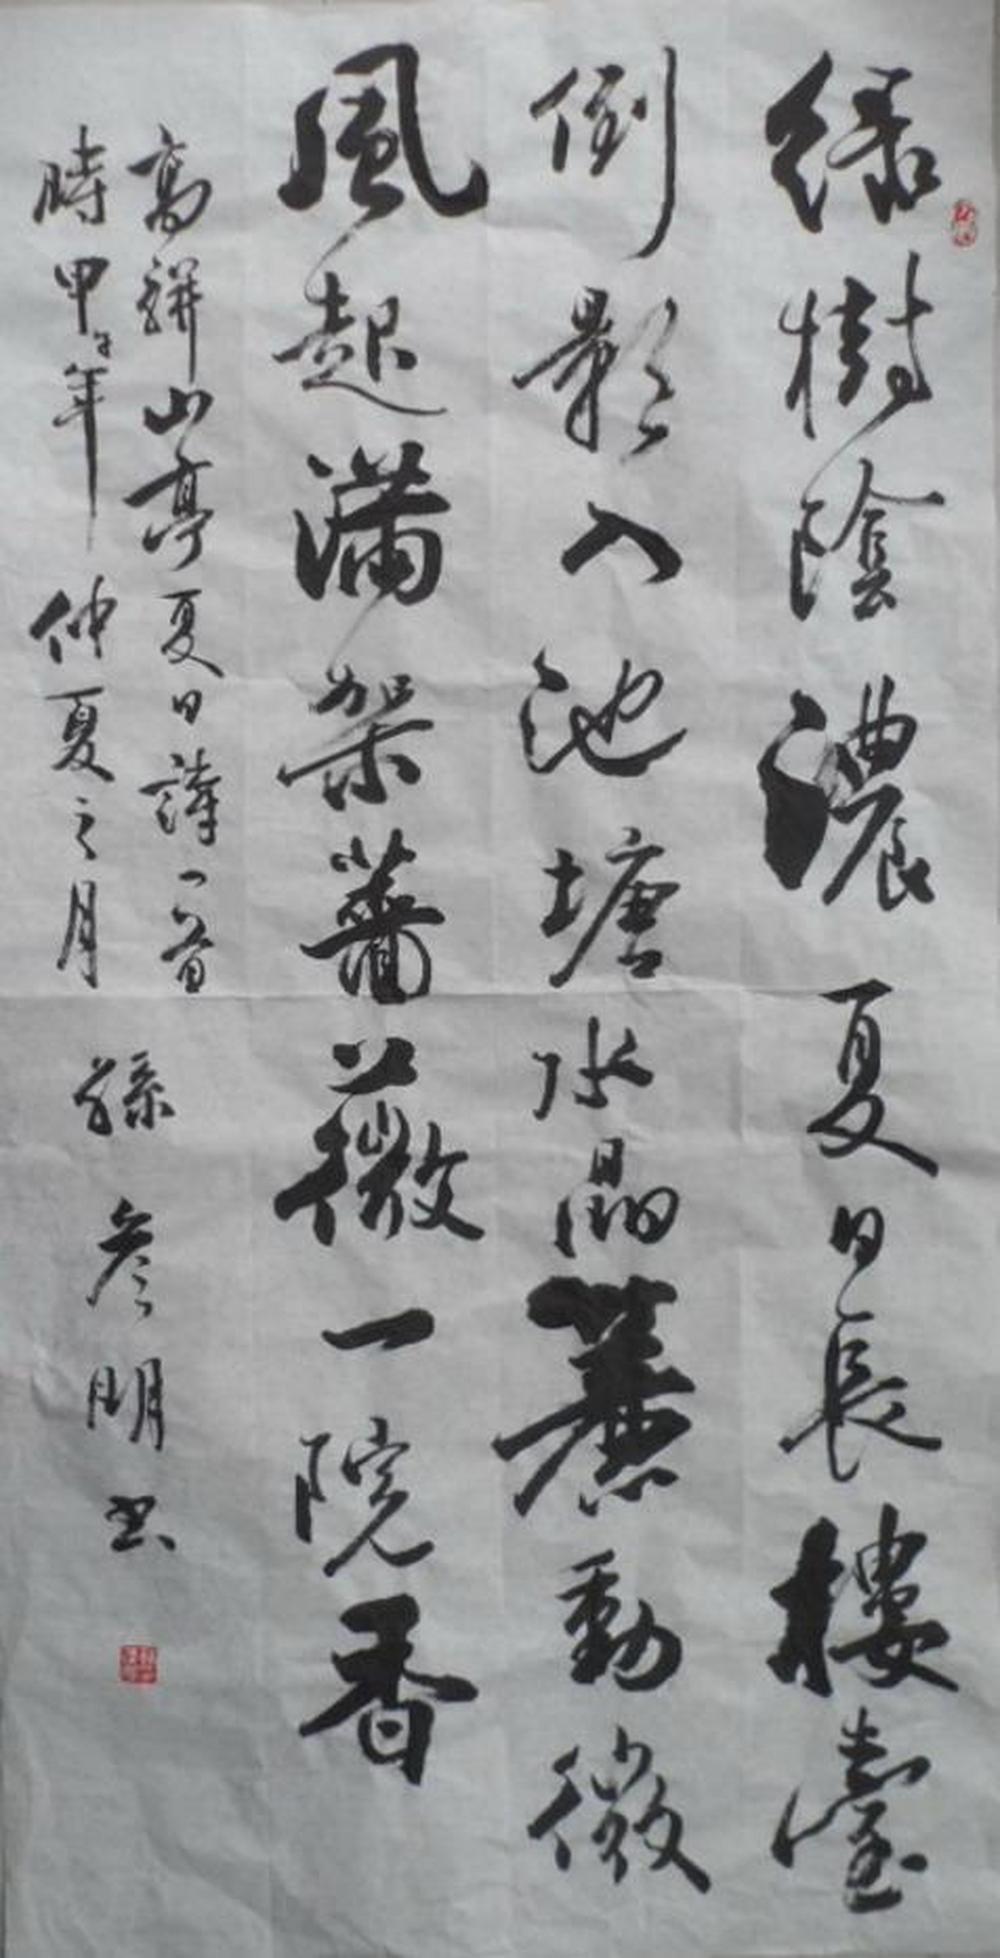 綠樹陰濃夏日長樓臺
倒影入池塘水晶簾動微
風起滿架薔薇一院香
高駢山亭夏日詩一首
時甲午年仲夏之月
孫彦明书